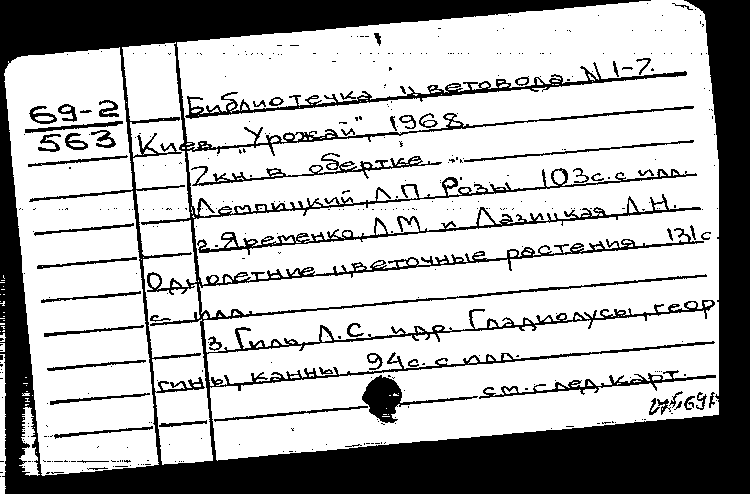 69-2
563
Библиотечка цветовода. N 1-7.
Киев, "Урожай", 1968.
7кн. в обертке.
Лемпицкий, Л.П. Розы. 103с. с илл.
2. Яременко, Л.М. и Лазицкая, Л.Н.
Однолетние цветочные растения. 131с.
с илл.
3. Гиль, Л.С. и др. Гладиолусы, геор
гины, канны. 94с. с илл.
см. след. карт.